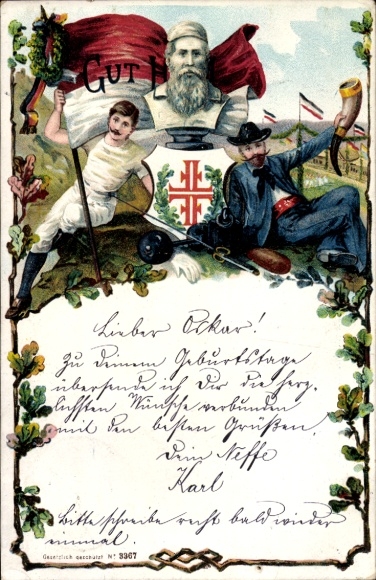 GUT H
Lieber Oskar!
Zu deinem Geburtstage
übersende ich Dir die herz-
lichsten Wünsche verbunden
mit den besten Grüßen.
Dein Neffe
Karl
Bitte schreibe recht bald wieder
einmal.
Gesetzlich geschützt No 3367